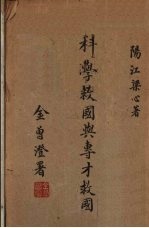 陽江梁心著
科學救國與專才救國
金曾澄署